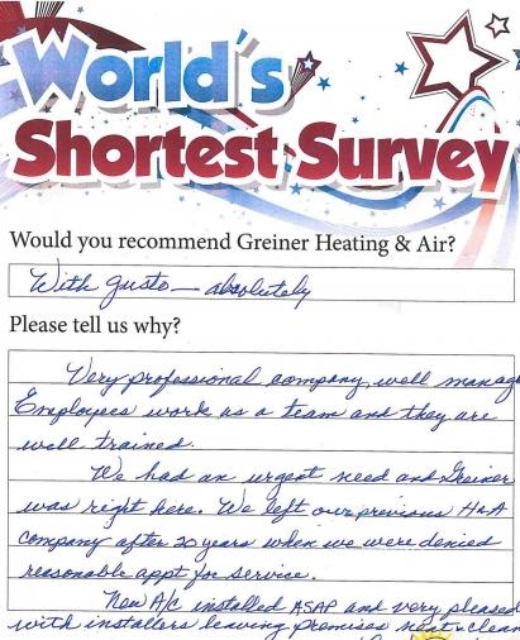 World's
Shortest Survey
Would you recommend Greiner Heating & Air?
With gusto — absolutely
Please tell us why?
Very professional company, well manag
Employees work as a team and they are
well trained.
We had an urgent need and Greiner
was right here. We left our previous H&A
company after 20 years when we were denied
reasonable appt for service.
New A/C installed ASAP and very pleased
with installers leaving premises neat & clean